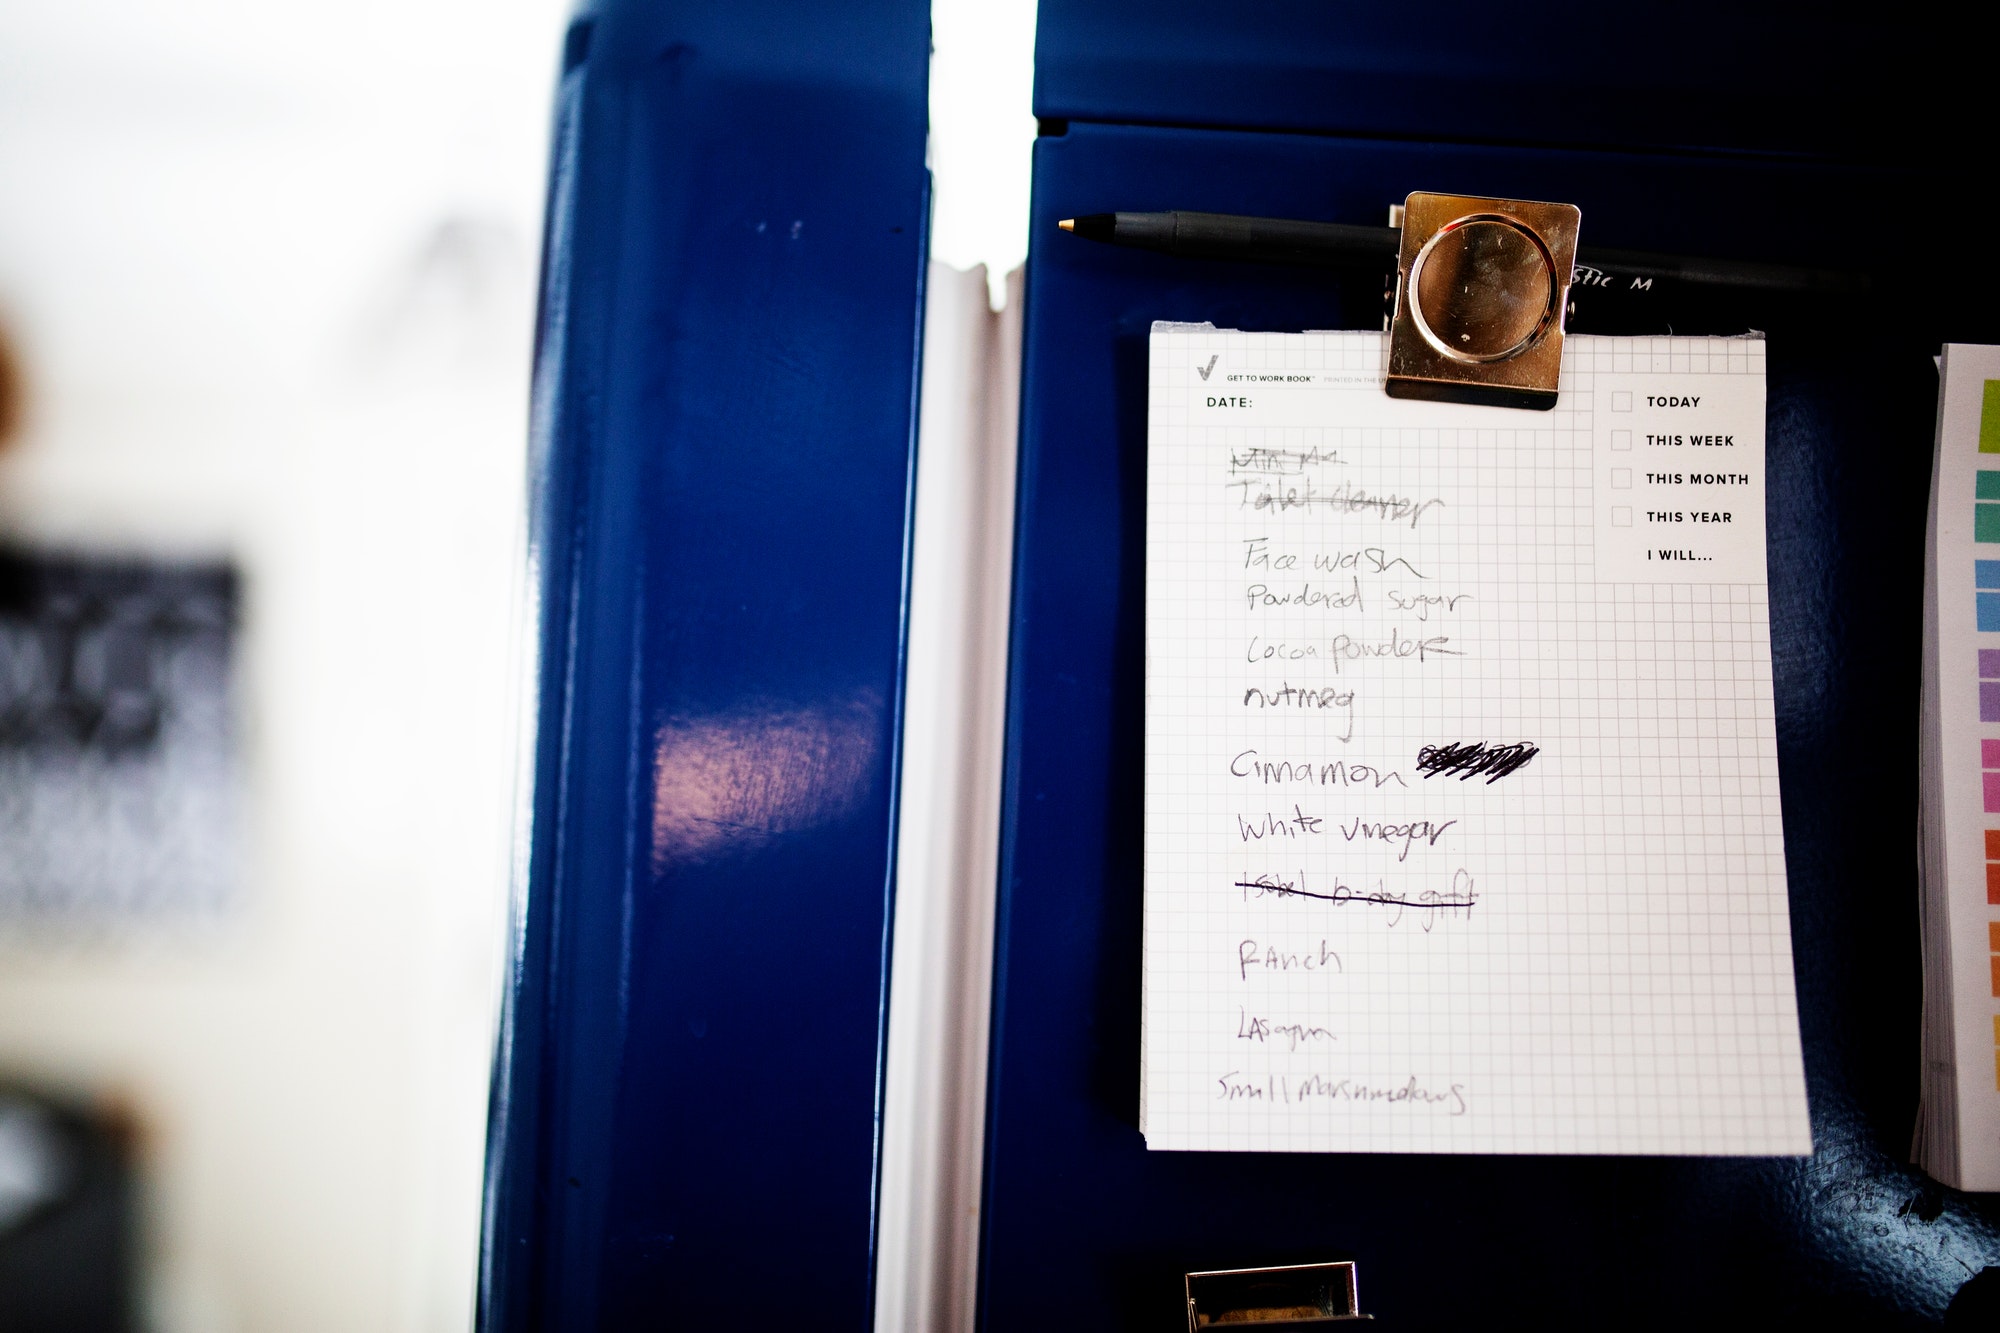 stic M
GET TO WORK BOOK™ PRINTED IN THE U
DATE:
TODAY
THIS WEEK
THIS MONTH
THIS YEAR
I WILL...
Mini
Toilet cleaner
Face wash
Powdered sugar
Cocoa Powder
nutmeg
Cinnamon
White vinegar
Isabel b-day gift
RAnch
LAsagna
Small Marshmallows